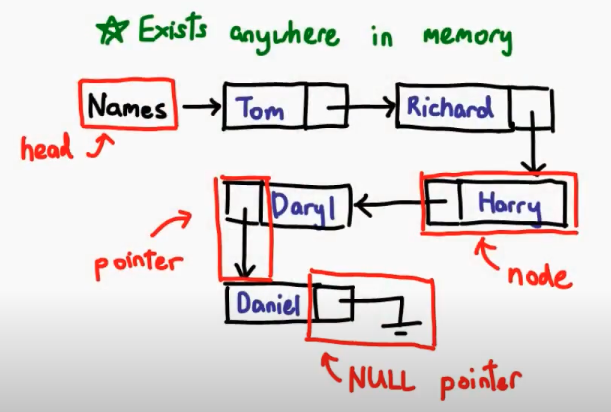 ☆ Exists anywhere in memory
Names
Tom
Richard
head
Daryl
Harry
pointer
node
Daniel
NULL pointer